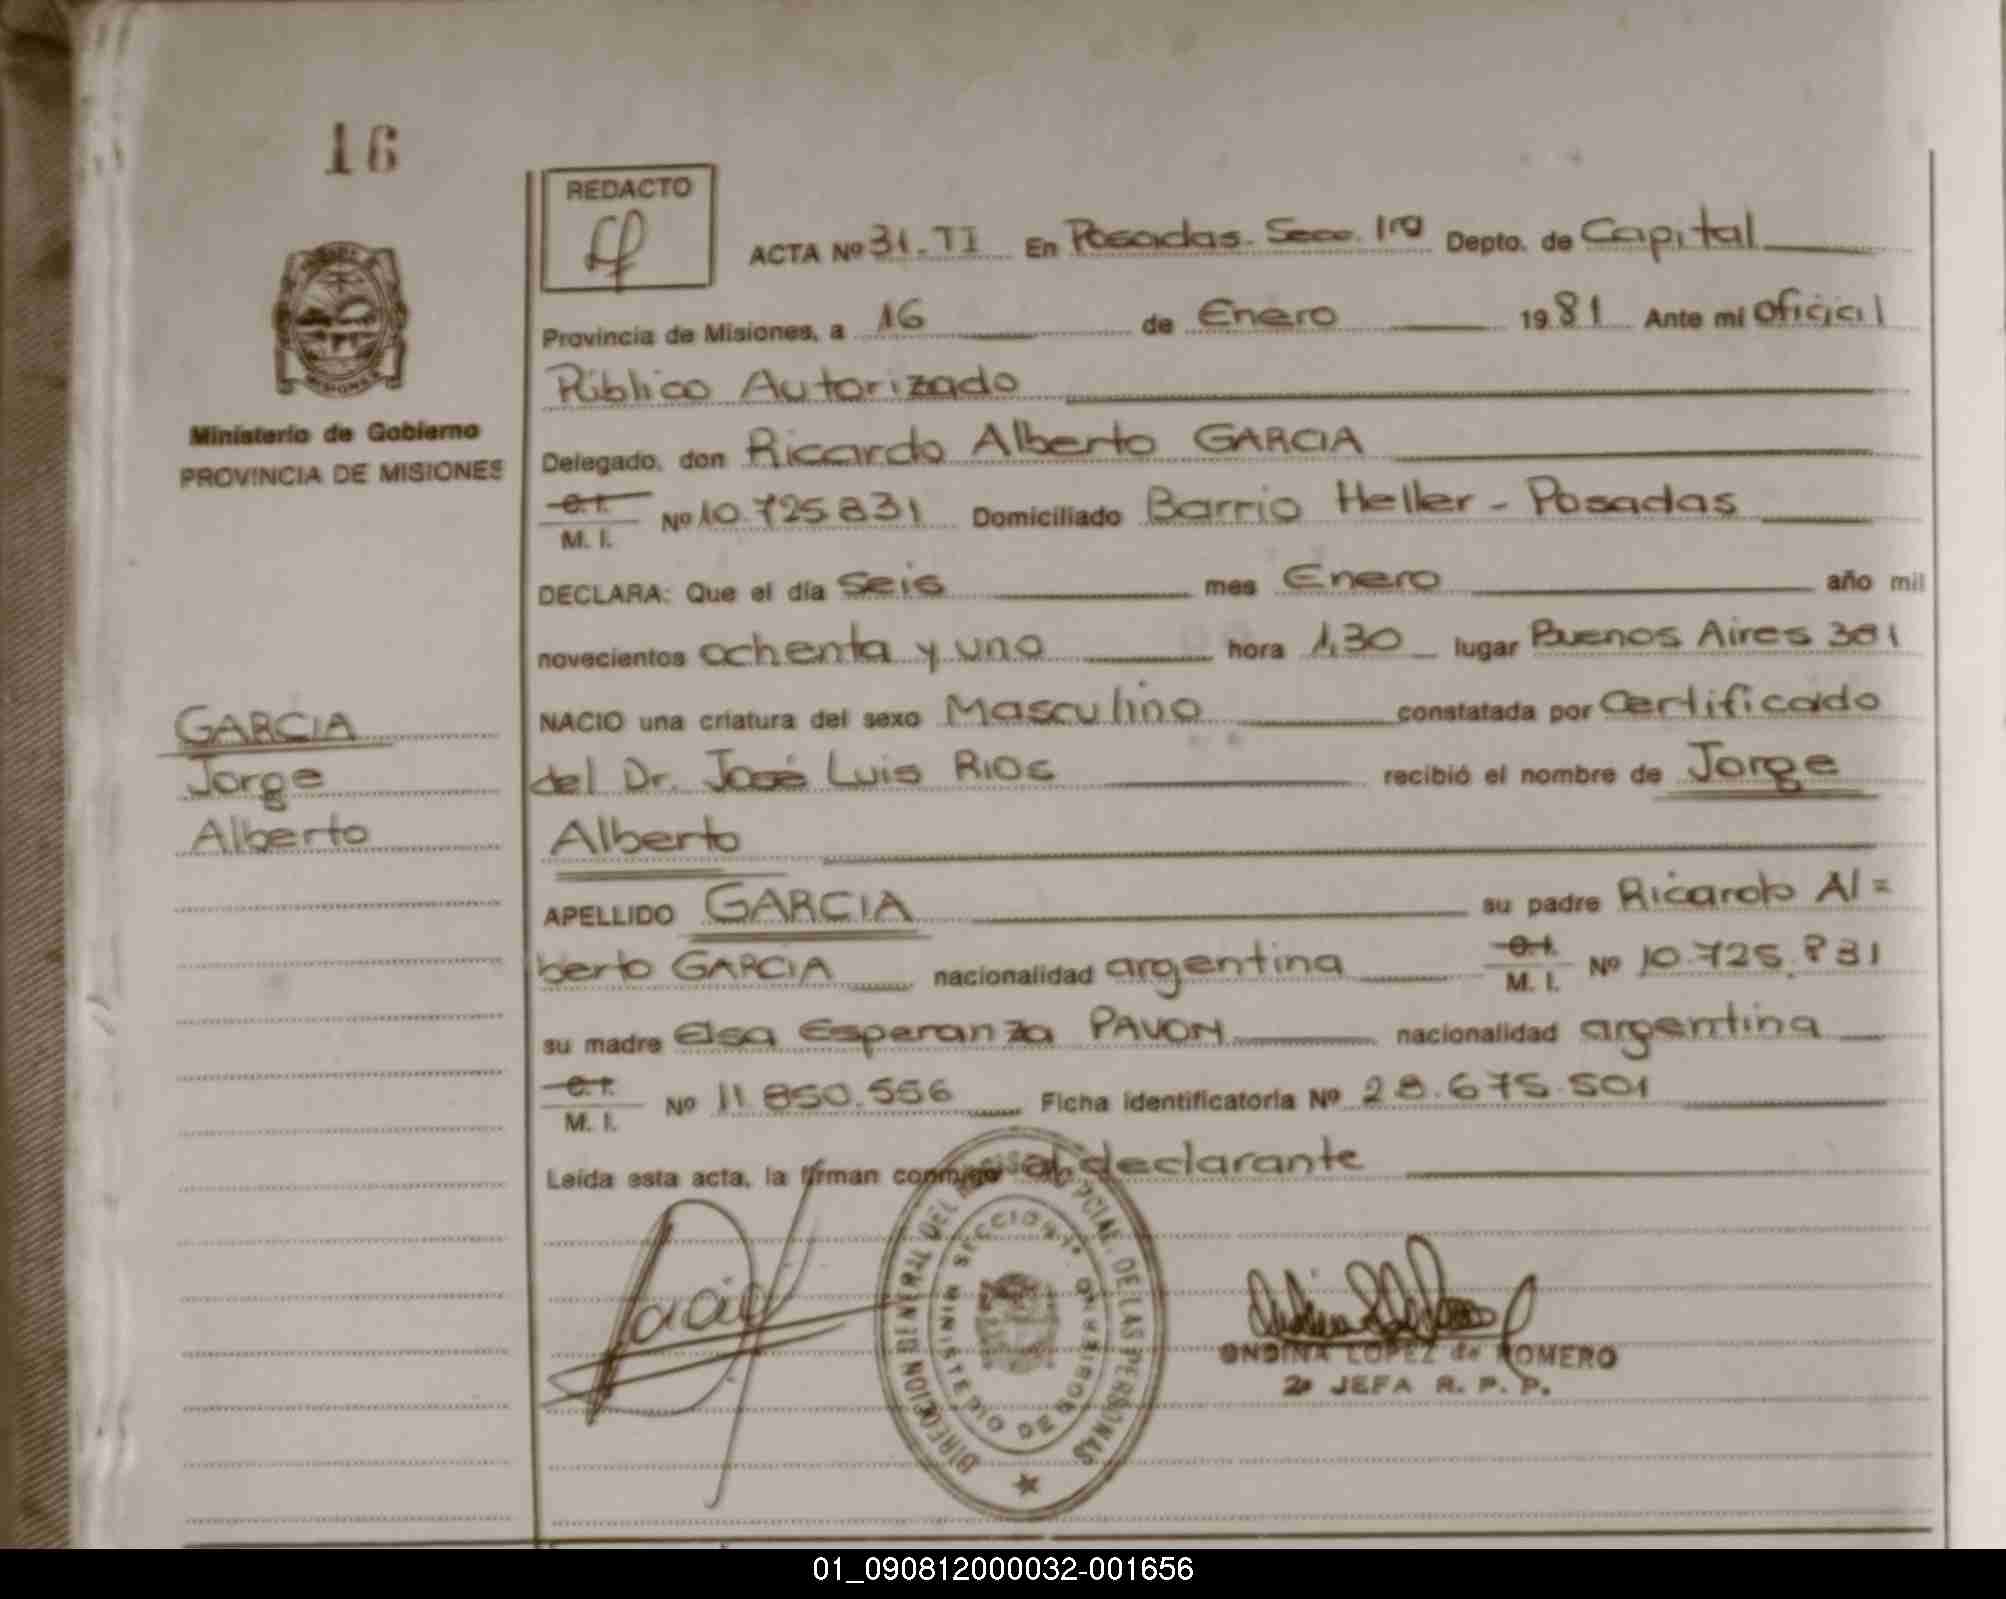 16
REDACTO
ACTA Nº 31-TI En Posadas. Secc. 1ra Depto. de Capital
Provincia de Misiones, a 16 de Enero 1981 Ante mi Oficial
Público Autorizado
Ministerio de Gobierno
PROVINCIA DE MISIONES
Delegado, don Ricardo Alberto GARCIA
C.I.
M. I. Nº 10.725831 Domiciliado Barrio Heller - Posadas
DECLARA: Que el día Seis mes Enero año mil
novecientos ochenta y uno hora 1,30 lugar Buenos Aires 381
GARCIA
Jorge
Alberto
NACIO una criatura del sexo Masculino constatada por Certificado
del Dr. José Luis RIOS recibió el nombre de Jorge
Alberto
APELLIDO GARCIA su padre Ricardo Al=
berto GARCIA nacionalidad argentina C.I. M. I. Nº 10.725.831
su madre Elsa Esperanza PAVON nacionalidad argentina
C.I.
M. I. Nº 11.850.556 Ficha identificatoria Nº 28.675.501
Leída esta acta, la firman conmigo el declarante
DIRECCION GENERAL DEL PCIAL. DE LAS PERSONAS
MINISTERIO DE GOBIERNO SECCION 1ª
ONDINA LOPEZ de ROMERO
2ª JEFA R. P. P.
01_090812000032-001656